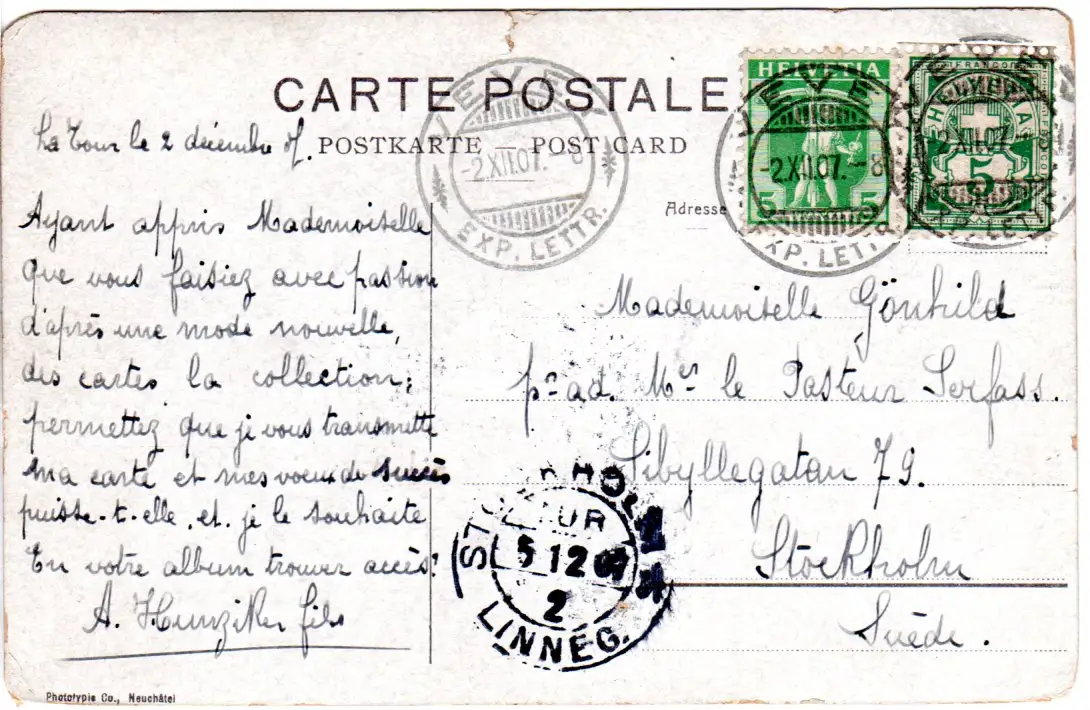 CARTE POSTALE
POSTKARTE — POST CARD
La Tour le 2 décembre 07.
Ayant appris Mademoiselle
Que vous faisiez avec passion
d'après une mode nouvelle,
des cartes la collection;
permettez que je vous transmette
ma carte et mes voeux de succès
puisse-t-elle, et je le souhaite
En votre album trouver accès!
A. Hunziker fils
Phototypie Co., Neuchâtel
VEVEY
-2.XII.07.-8
EXP. LETTR.
HELVETIA
5 5
VEVEY
-2.XII.07.-8
EXP. LETTR.
FRANCO
HELVETIA
5
2.XII.07.
Adresse
Mademoiselle Gönhild
pr. ad. Mr le Pasteur Serfass.
Sibyllegatan 79.
Stockholm
Suède.
STOCKHOLM
5 12 07
2
LINNÉG.